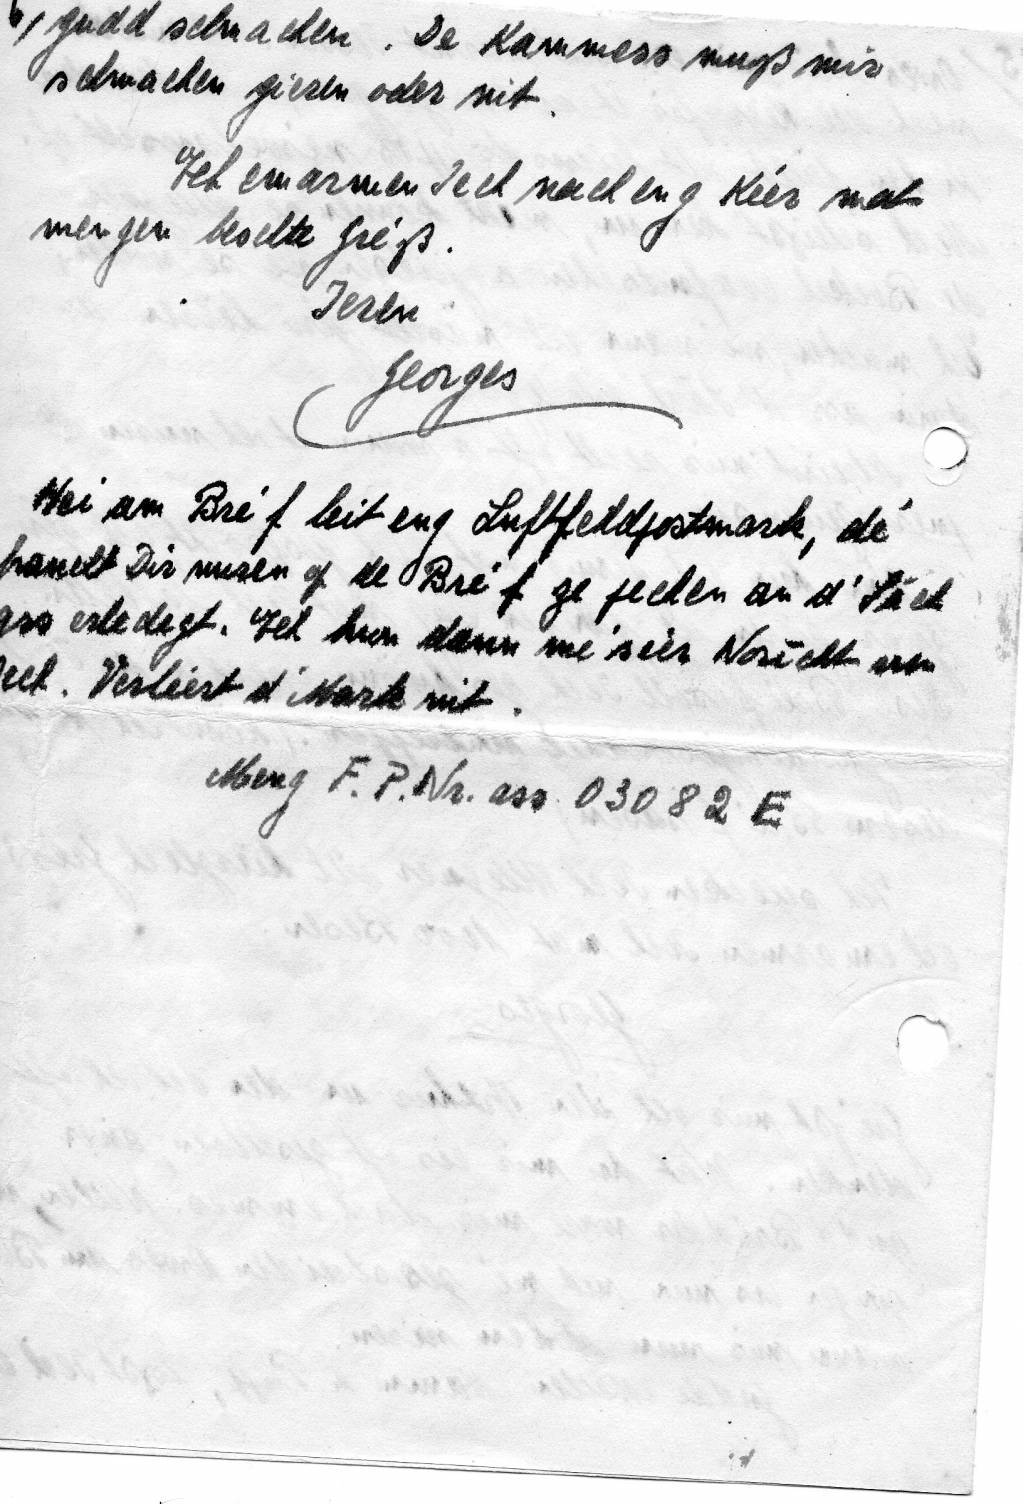 6, gudd schmachen. De Kammess muß mir
schmachen gieren oder nit.
Ech emarmen Iech nach eng Kéer mat
mengen beschte Gréß.
Ieren
Georges
Hei am Bréf leit eng Luftfeldpostmark, dé
Dir nuren op de Bréf ze pechen an d'Sach
ass erledegt. Ech hun dann mé séier Noricht vun
Iech. Verléiert d'Mark nit.
Meng F.P.Nr. ass 03082 E